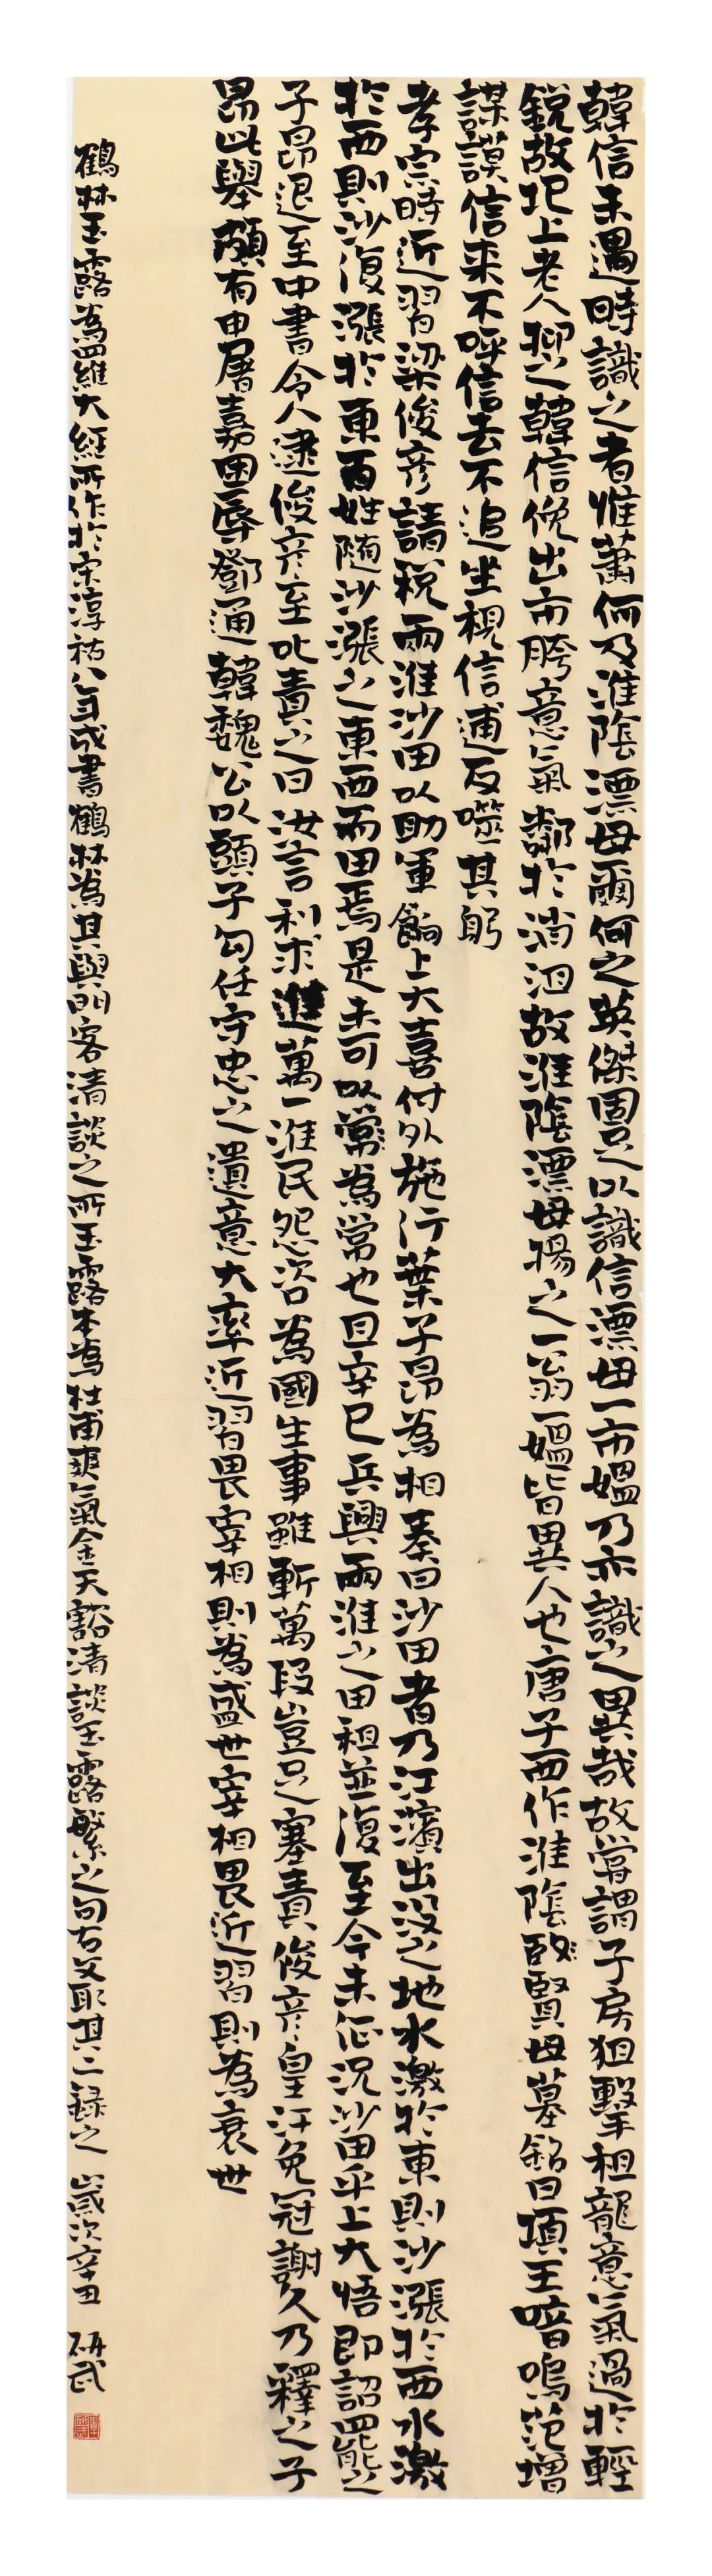 韓信未遇時識之者惟蕭何及淮陰漂母爾何之英傑固足以識信漂母一市媼乃亦識之異哉故嘗謂子房狙擊祖龍意氣過於輕
銳故圯上老人抑之韓信俛出市胯意氣鄰於消沮故淮陰漂母揚之一翁一媼皆異人也唐子西作淮陰賢母墓銘曰項王喑嗚范增
謀謨信來不呼信去不追坐視信逋反噬其躬
孝宗時近習梁俊彥請稅兩淮沙田以助軍餉上大喜付外施行葉子昂為相奏曰沙田者乃江濱出沒之地水激於東則沙漲於西水激
於西則沙復漲於東百姓隨沙漲之東西而田焉是未可以為常也且辛巳兵興兩淮之田租並復至今未征況沙田乎上大悟即詔罷之
子昂退至中書令人逮俊彥至叱責之曰汝言利求進萬一淮民怨咨為國生事雖斬萬段豈足塞責俊彥皇汗免冠謝久乃釋之子
昂此舉頗有申屠嘉困辱鄧通韓魏公以頭子勾任守忠之遺意大率近習畏宰相則為盛世宰相畏近習則為衰世
鶴林玉露為羅大經所作於宋淳祐八年成書鶴林為其與門客清談之所玉露本為杜甫爽氣金天豁清談玉露繁之句右文取其二錄之 歲次辛丑 研武